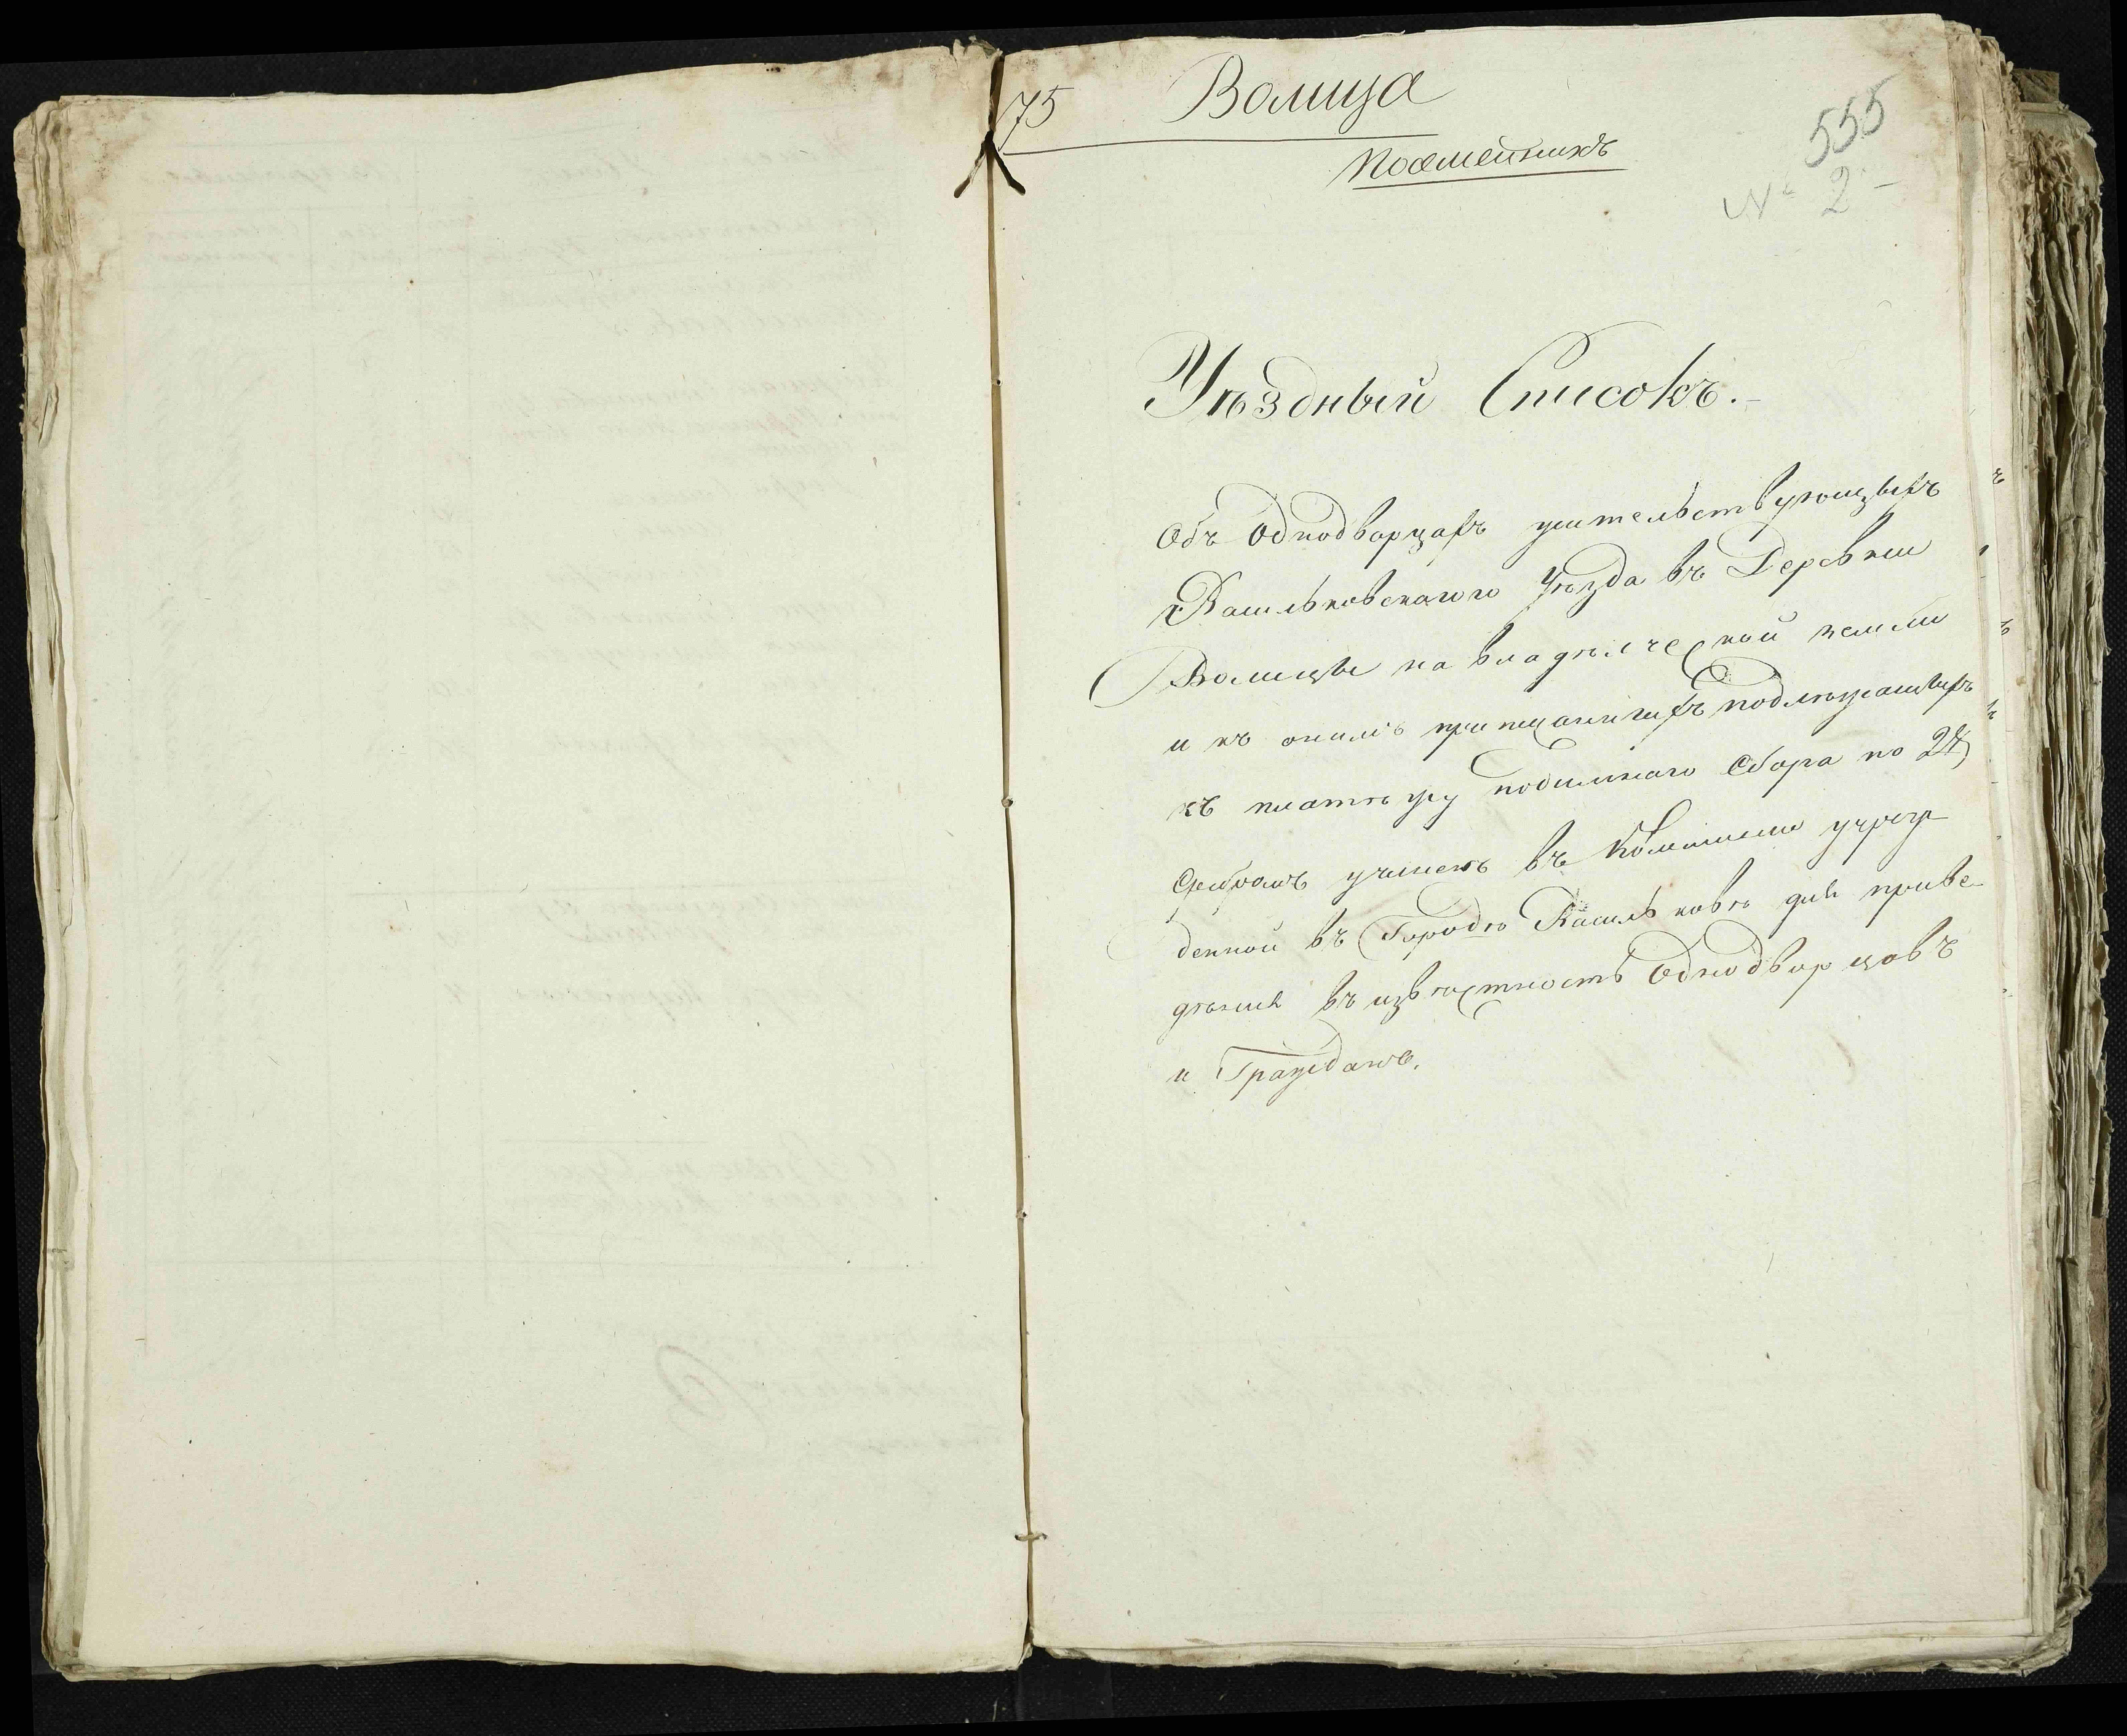 75 Волица
555
№ 2
Уѣздный Списокъ.
Объ Однодворцахъ жительствующихъ
Васильковскаго Уѣзда въ Деревни
Волицы на владѣлческой земли
и къ онимъ подлежащихъ
къ платежу подимнаго сбора по 24
учиненъ въ Комиссии учреж-
денной въ Городѣ Васильковѣ для приве-
дѣния въ извѣстность однодворцовъ
и Гражданъ.